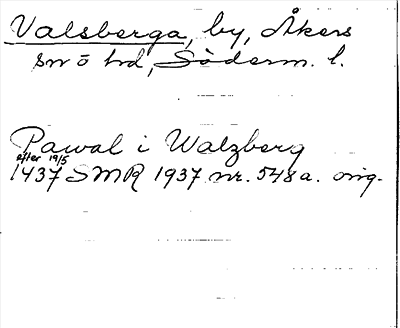 Valsberga, by, Åkers
sn ö hd, Söderm. l.
Pawal i Walzberg
efter 19/5
1437 SMR 1937 nr. 548a. orig.